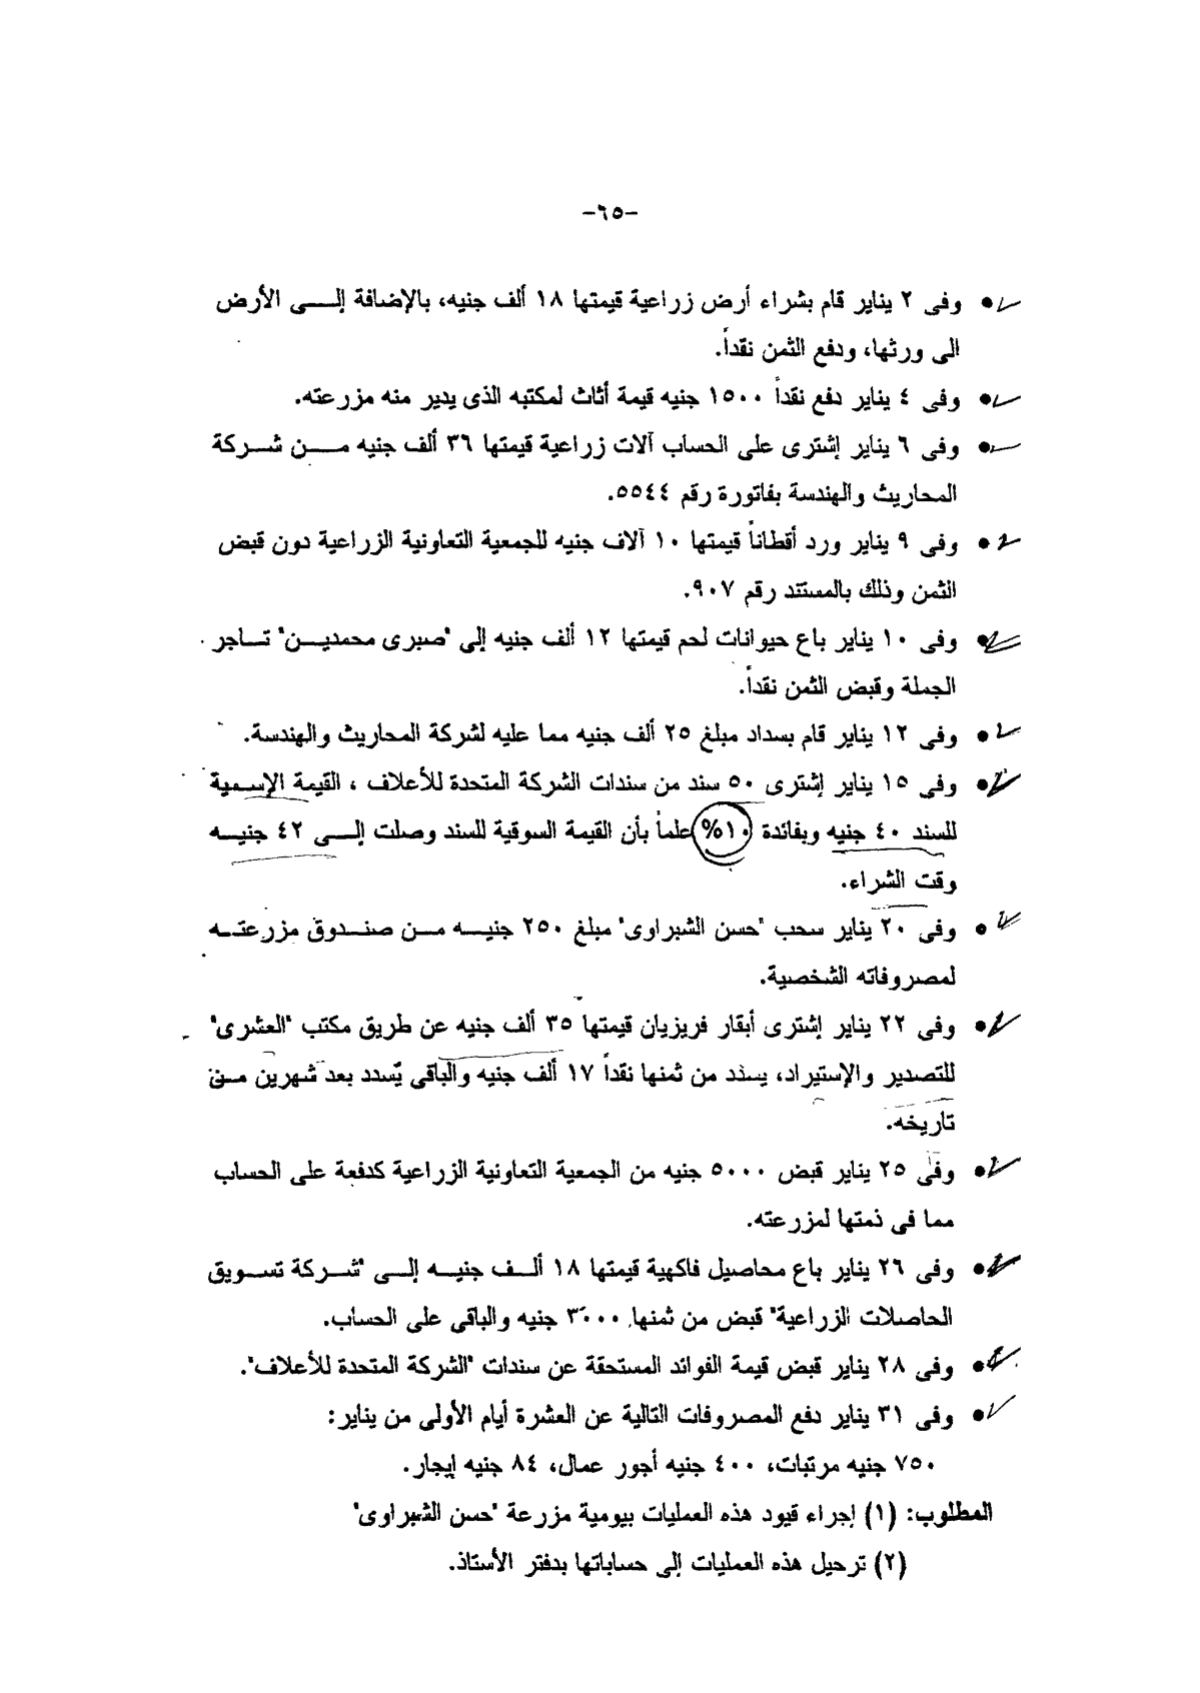 -٦٥-
• وفى ٢ يناير قام بشراء أرض زراعية قيمتها ١٨ ألف جنيه، بالإضافة إلـــى الأرض
الى ورثها، ودفع الثمن نقداً.
• وفى ٤ يناير دفع نقداً ١٥٠٠ جنيه قيمة أثاث لمكتبه الذى يدير منه مزرعته.
• وفى ٦ يناير إشترى على الحساب آلات زراعية قيمتها ٣٦ ألف جنيه مـــن شـــركة
المحاريث والهندسة بفاتورة رقم ٥٥٤٤.
• وفى ٩ يناير ورد أقطاناً قيمتها ١٠ آلاف جنيه للجمعية التعاونية الزراعية دون قبض
الثمن وذلك بالمستند رقم ٩٠٧.
• وفى ١٠ يناير باع حيوانات لحم قيمتها ١٢ ألف جنيه إلى "صبرى محمديـــن" تـــاجر
الجملة وقبض الثمن نقداً.
• وفى ١٢ يناير قام بسداد مبلغ ٢٥ ألف جنيه مما عليه لشركة المحاريث والهندسة.
• وفى ١٥ يناير إشترى ٥٠ سند من سندات الشركة المتحدة للأعلاف ، القيمة الإسـمية
للسند ٤٠ جنيه وبفائدة ١٠% علماً بأن القيمة السوقية للسند وصلت إلـــى ٤٢ جنيـــه
وقت الشراء.
• وفى ٢٠ يناير سحب "حسن الشبراوى" مبلغ ٢٥٠ جنيـــه مـــن صنـــدوق مزرعتـــه
لمصروفاته الشخصية.
• وفى ٢٢ يناير إشترى أبقار فريزيان قيمتها ٣٥ ألف جنيه عن طريق مكتب "العشرى"
للتصدير والإستيراد، يسدد من ثمنها نقداً ١٧ ألف جنيه والباقى يُسدد بعد شهرين مـــن
تاريخه.
• وفى ٢٥ يناير قبض ٥٠٠٠ جنيه من الجمعية التعاونية الزراعية كدفعة على الحساب
مما فى ذمتها لمزرعته.
• وفى ٢٦ يناير باع محاصيل فاكهية قيمتها ١٨ ألـــف جنيـــه إلـــى "شـــركة تســـويق
الحاصلات الزراعية" قبض من ثمنها ٣٠٠٠ جنيه والباقى على الحساب.
• وفى ٢٨ يناير قبض قيمة الفوائد المستحقة عن سندات "الشركة المتحدة للأعلاف".
• وفى ٣١ يناير دفع المصروفات التالية عن العشرة أيام الأولى من يناير:
٧٥٠ جنيه مرتبات، ٤٠٠ جنيه أجور عمال، ٨٤ جنيه إيجار.
المطلوب: (١) إجراء قيود هذه العمليات بيومية مزرعة "حسن الشبراوى"
(٢) ترحيل هذه العمليات إلى حساباتها بدفتر الأستاذ.